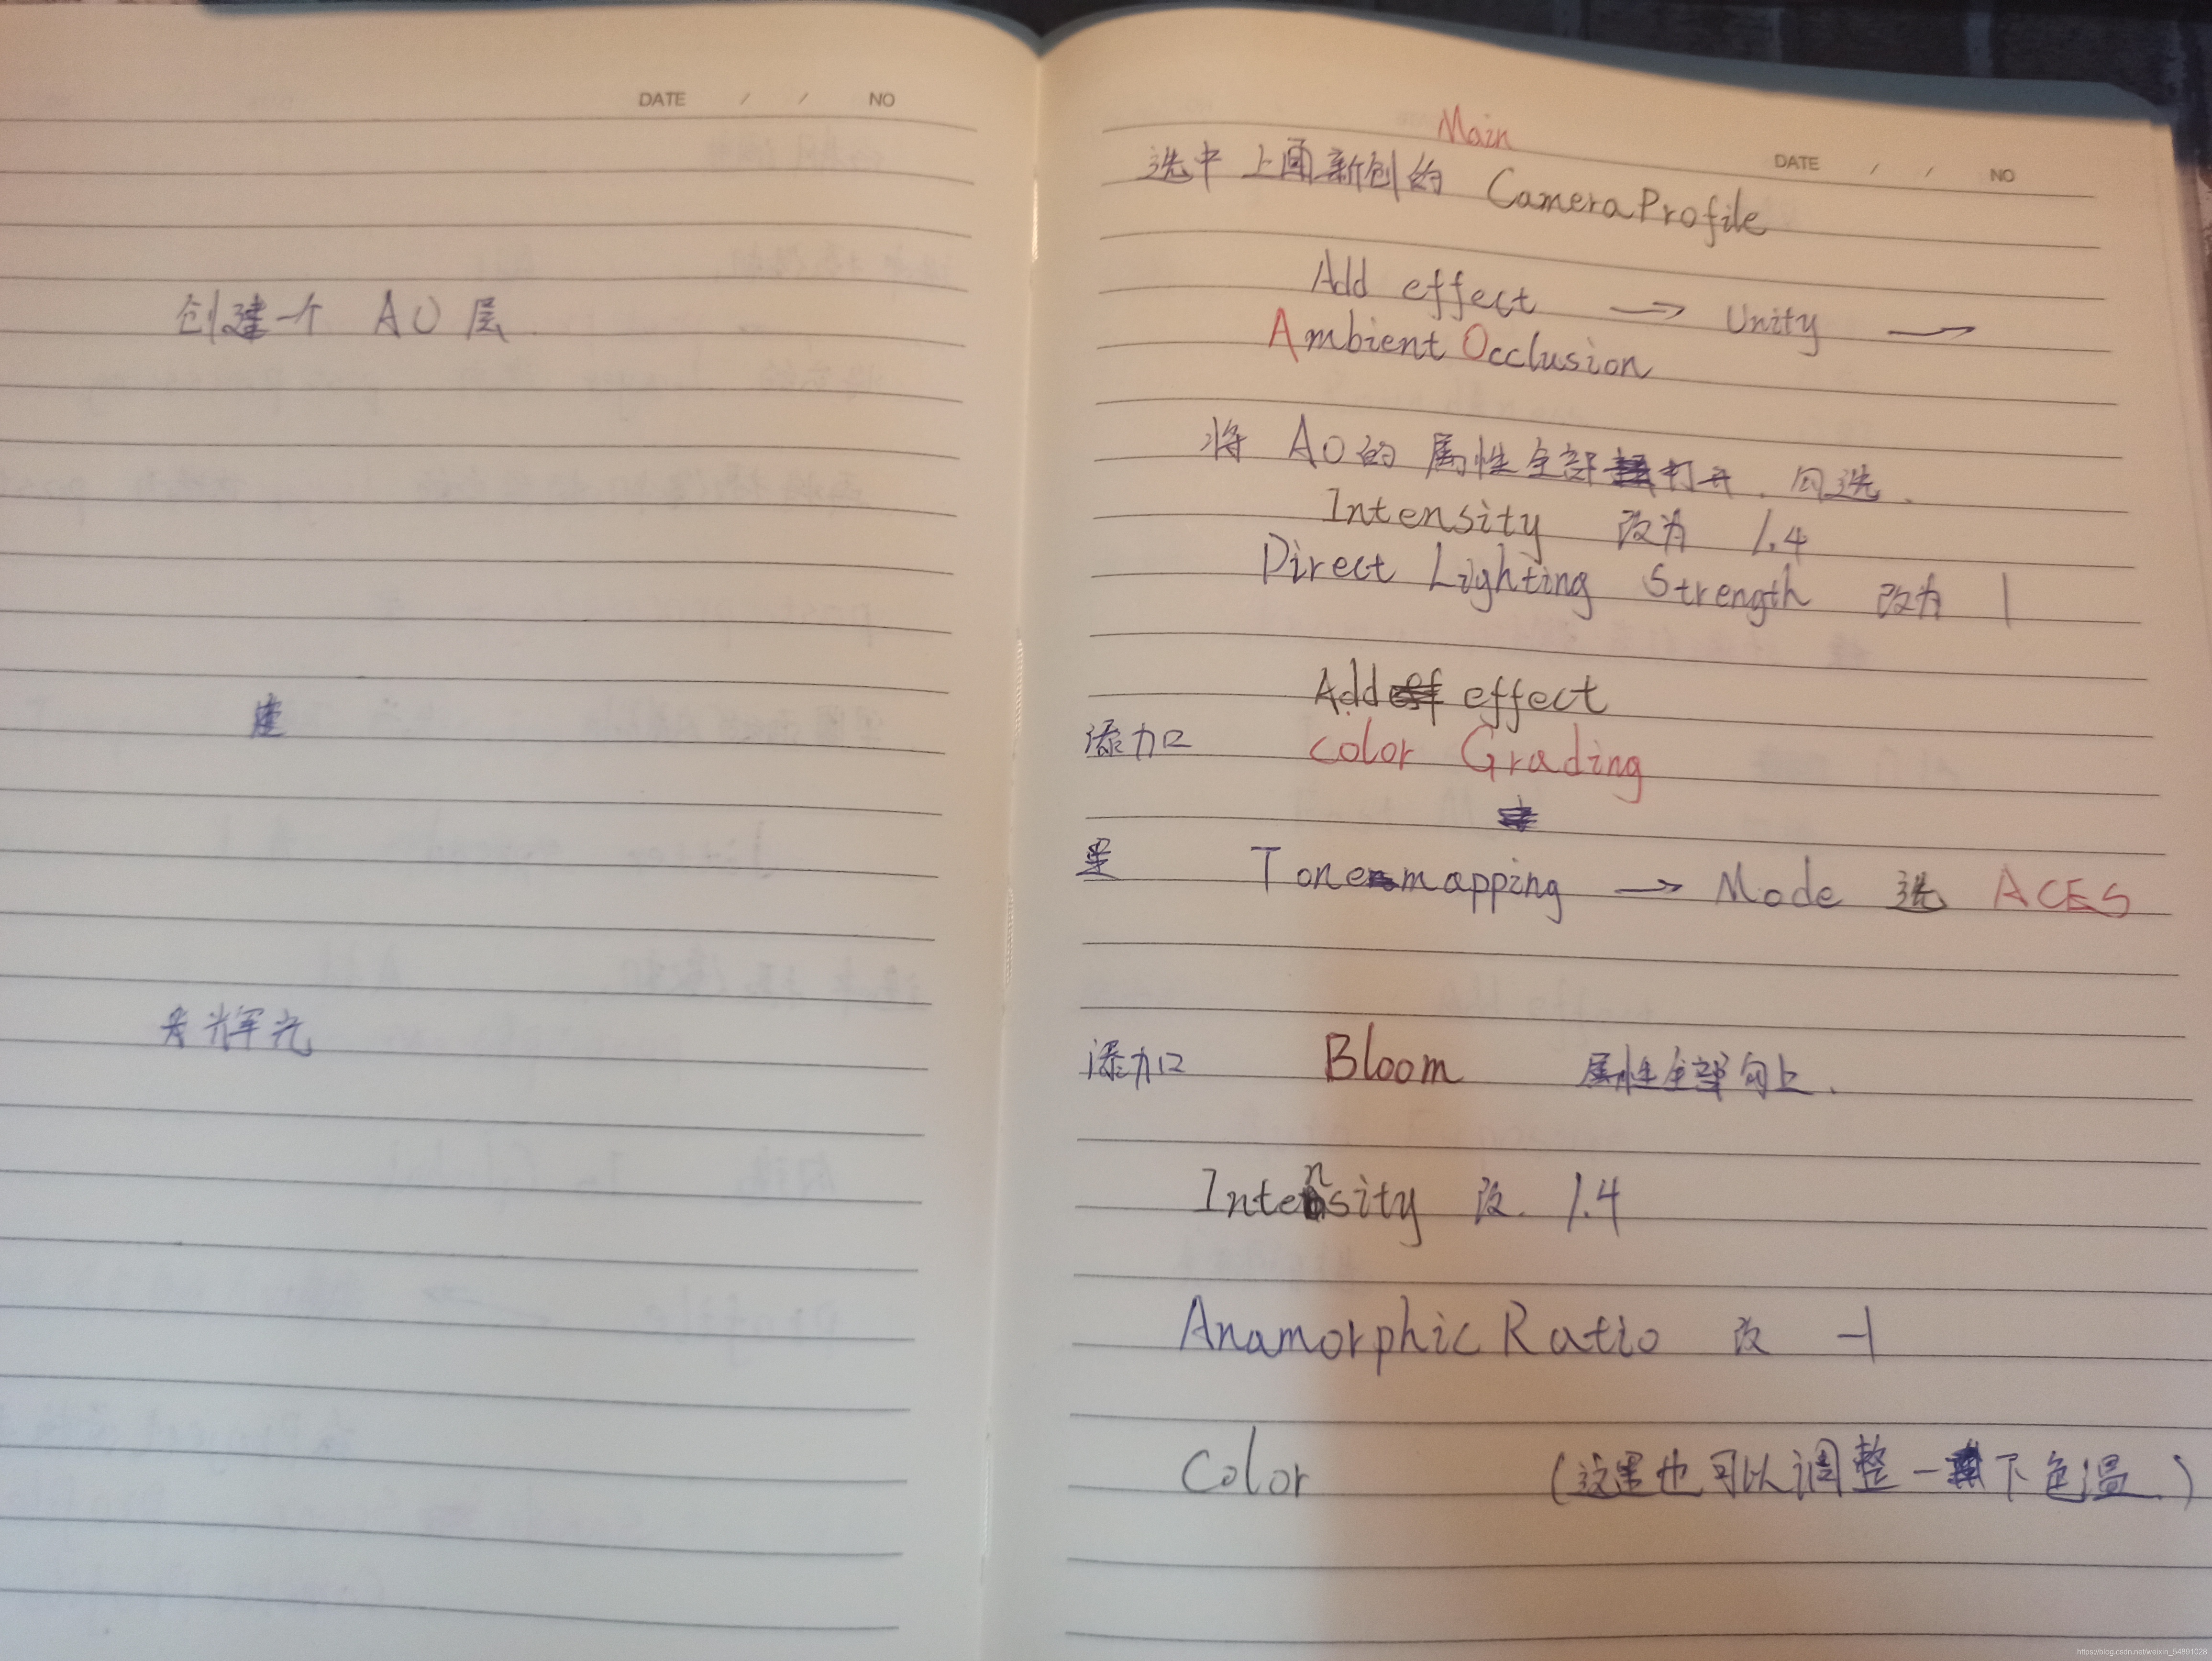 DATE / / NO
创建一个 AO 层
辉光
Main
DATE / / NO
选中 上面新创的 CameraProfile
Add effect → Unity →
Ambient Occlusion
将 AO的 属性全部打开. 勾选.
Intensity 改为 1.4
Direct Lighting Strength 改为 1
Add effect
添加 Color Grading
Tonemapping → Mode 选 ACES
添加 Bloom 属性全部勾上.
Intensity 改. 1.4
Anamorphic Ratio 改 -1
Color (这里也可以调整一下色温.)
https://blog.csdn.net/weixin_54891028